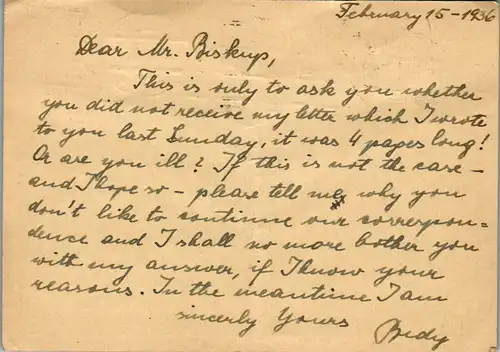 February 15-1936
Dear Mr. Biskup,
This is only to ask you whether
you did not receive my letter which I wrote
to you last Sunday, it was 4 pages long!
Or are you ill? If this is not the case -
and I hope so - please tell me why you
don't like to continue our correspon-
dence and I shall no more bother you
with my answer, if I know your
reasons. In the meantime I am
sincerly Yours